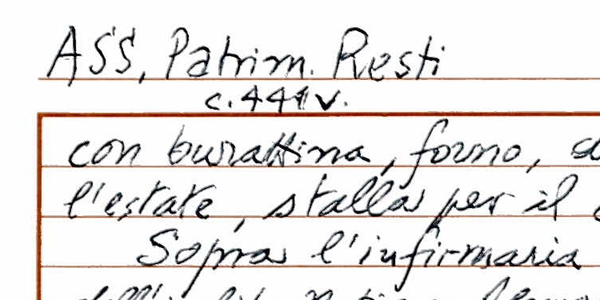 ASS, Patrim. Resti
c. 441v.
con burattina, forno,
l'estate, stalla per il
Sopra l'infirmaria